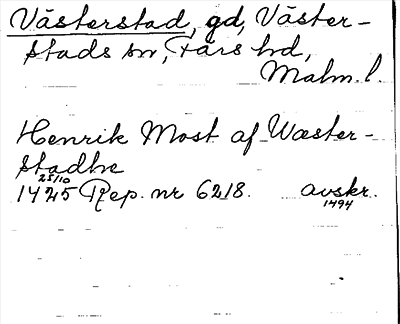 Västerstad, gd, Väster-
stads sn, Färs hd,
Malm. l.
Henrik Most af Wæster-
stadhe
25/10
1425 Rep. nr 6218. avskr.
1494